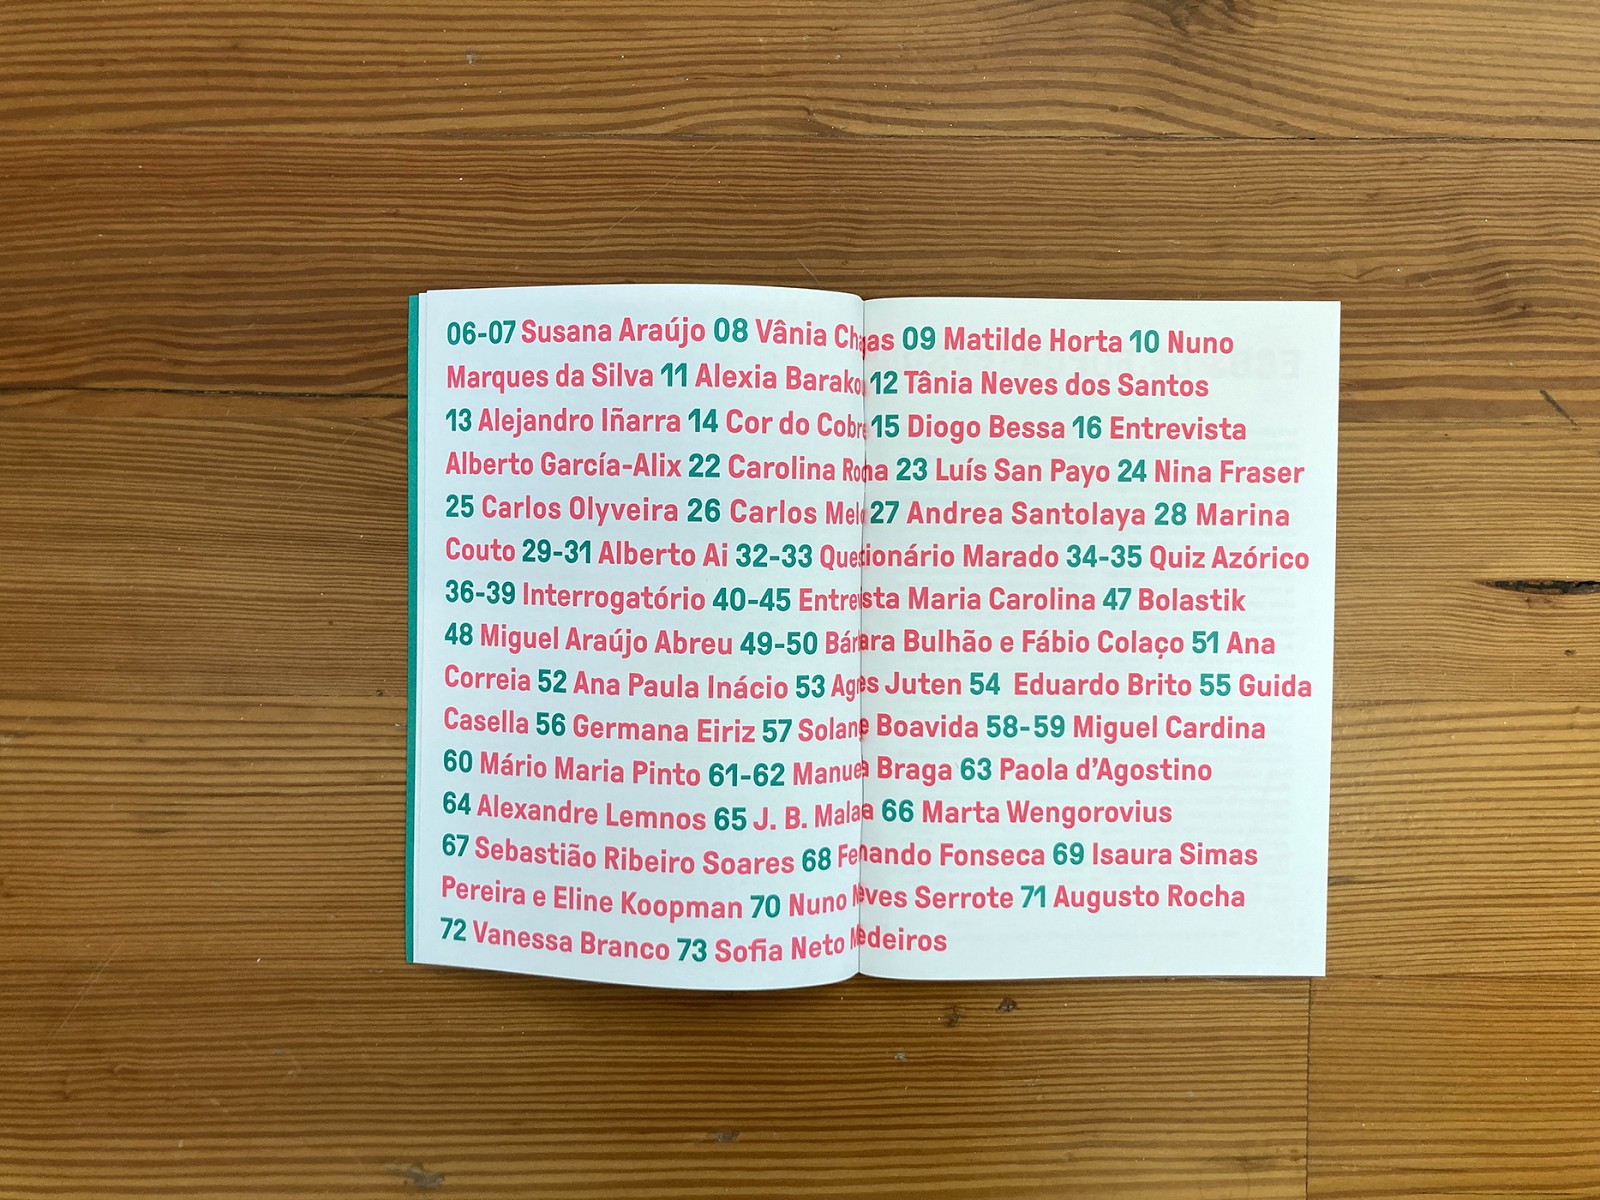 06-07 Susana Araújo 08 Vânia Chagas 09 Matilde Horta 10 Nuno
Marques da Silva 11 Alexia Barakou 12 Tânia Neves dos Santos
13 Alejandro Iñarra 14 Cor do Cobre 15 Diogo Bessa 16 Entrevista
Alberto García-Alix 22 Carolina Roma 23 Luís San Payo 24 Nina Fraser
25 Carlos Olyveira 26 Carlos Melo 27 Andrea Santolaya 28 Marina
Couto 29-31 Alberto Ai 32-33 Questionário Marado 34-35 Quiz Azórico
36-39 Interrogatório 40-45 Entrevista Maria Carolina 47 Bolastik
48 Miguel Araújo Abreu 49-50 Bárbara Bulhão e Fábio Colaço 51 Ana
Correia 52 Ana Paula Inácio 53 Agnes Juten 54 Eduardo Brito 55 Guida
Casella 56 Germana Eiriz 57 Solange Boavida 58-59 Miguel Cardina
60 Mário Maria Pinto 61-62 Manuela Braga 63 Paola d’Agostino
64 Alexandre Lemnos 65 J. B. 66 Marta Wengorovius
67 Sebastião Ribeiro Soares 68 Fernando Fonseca 69 Isaura Simas
Pereira e Eline Koopman 70 Nuno Neves Serrote 71 Augusto Rocha
72 Vanessa Branco 73 Sofia Neto Medeiros